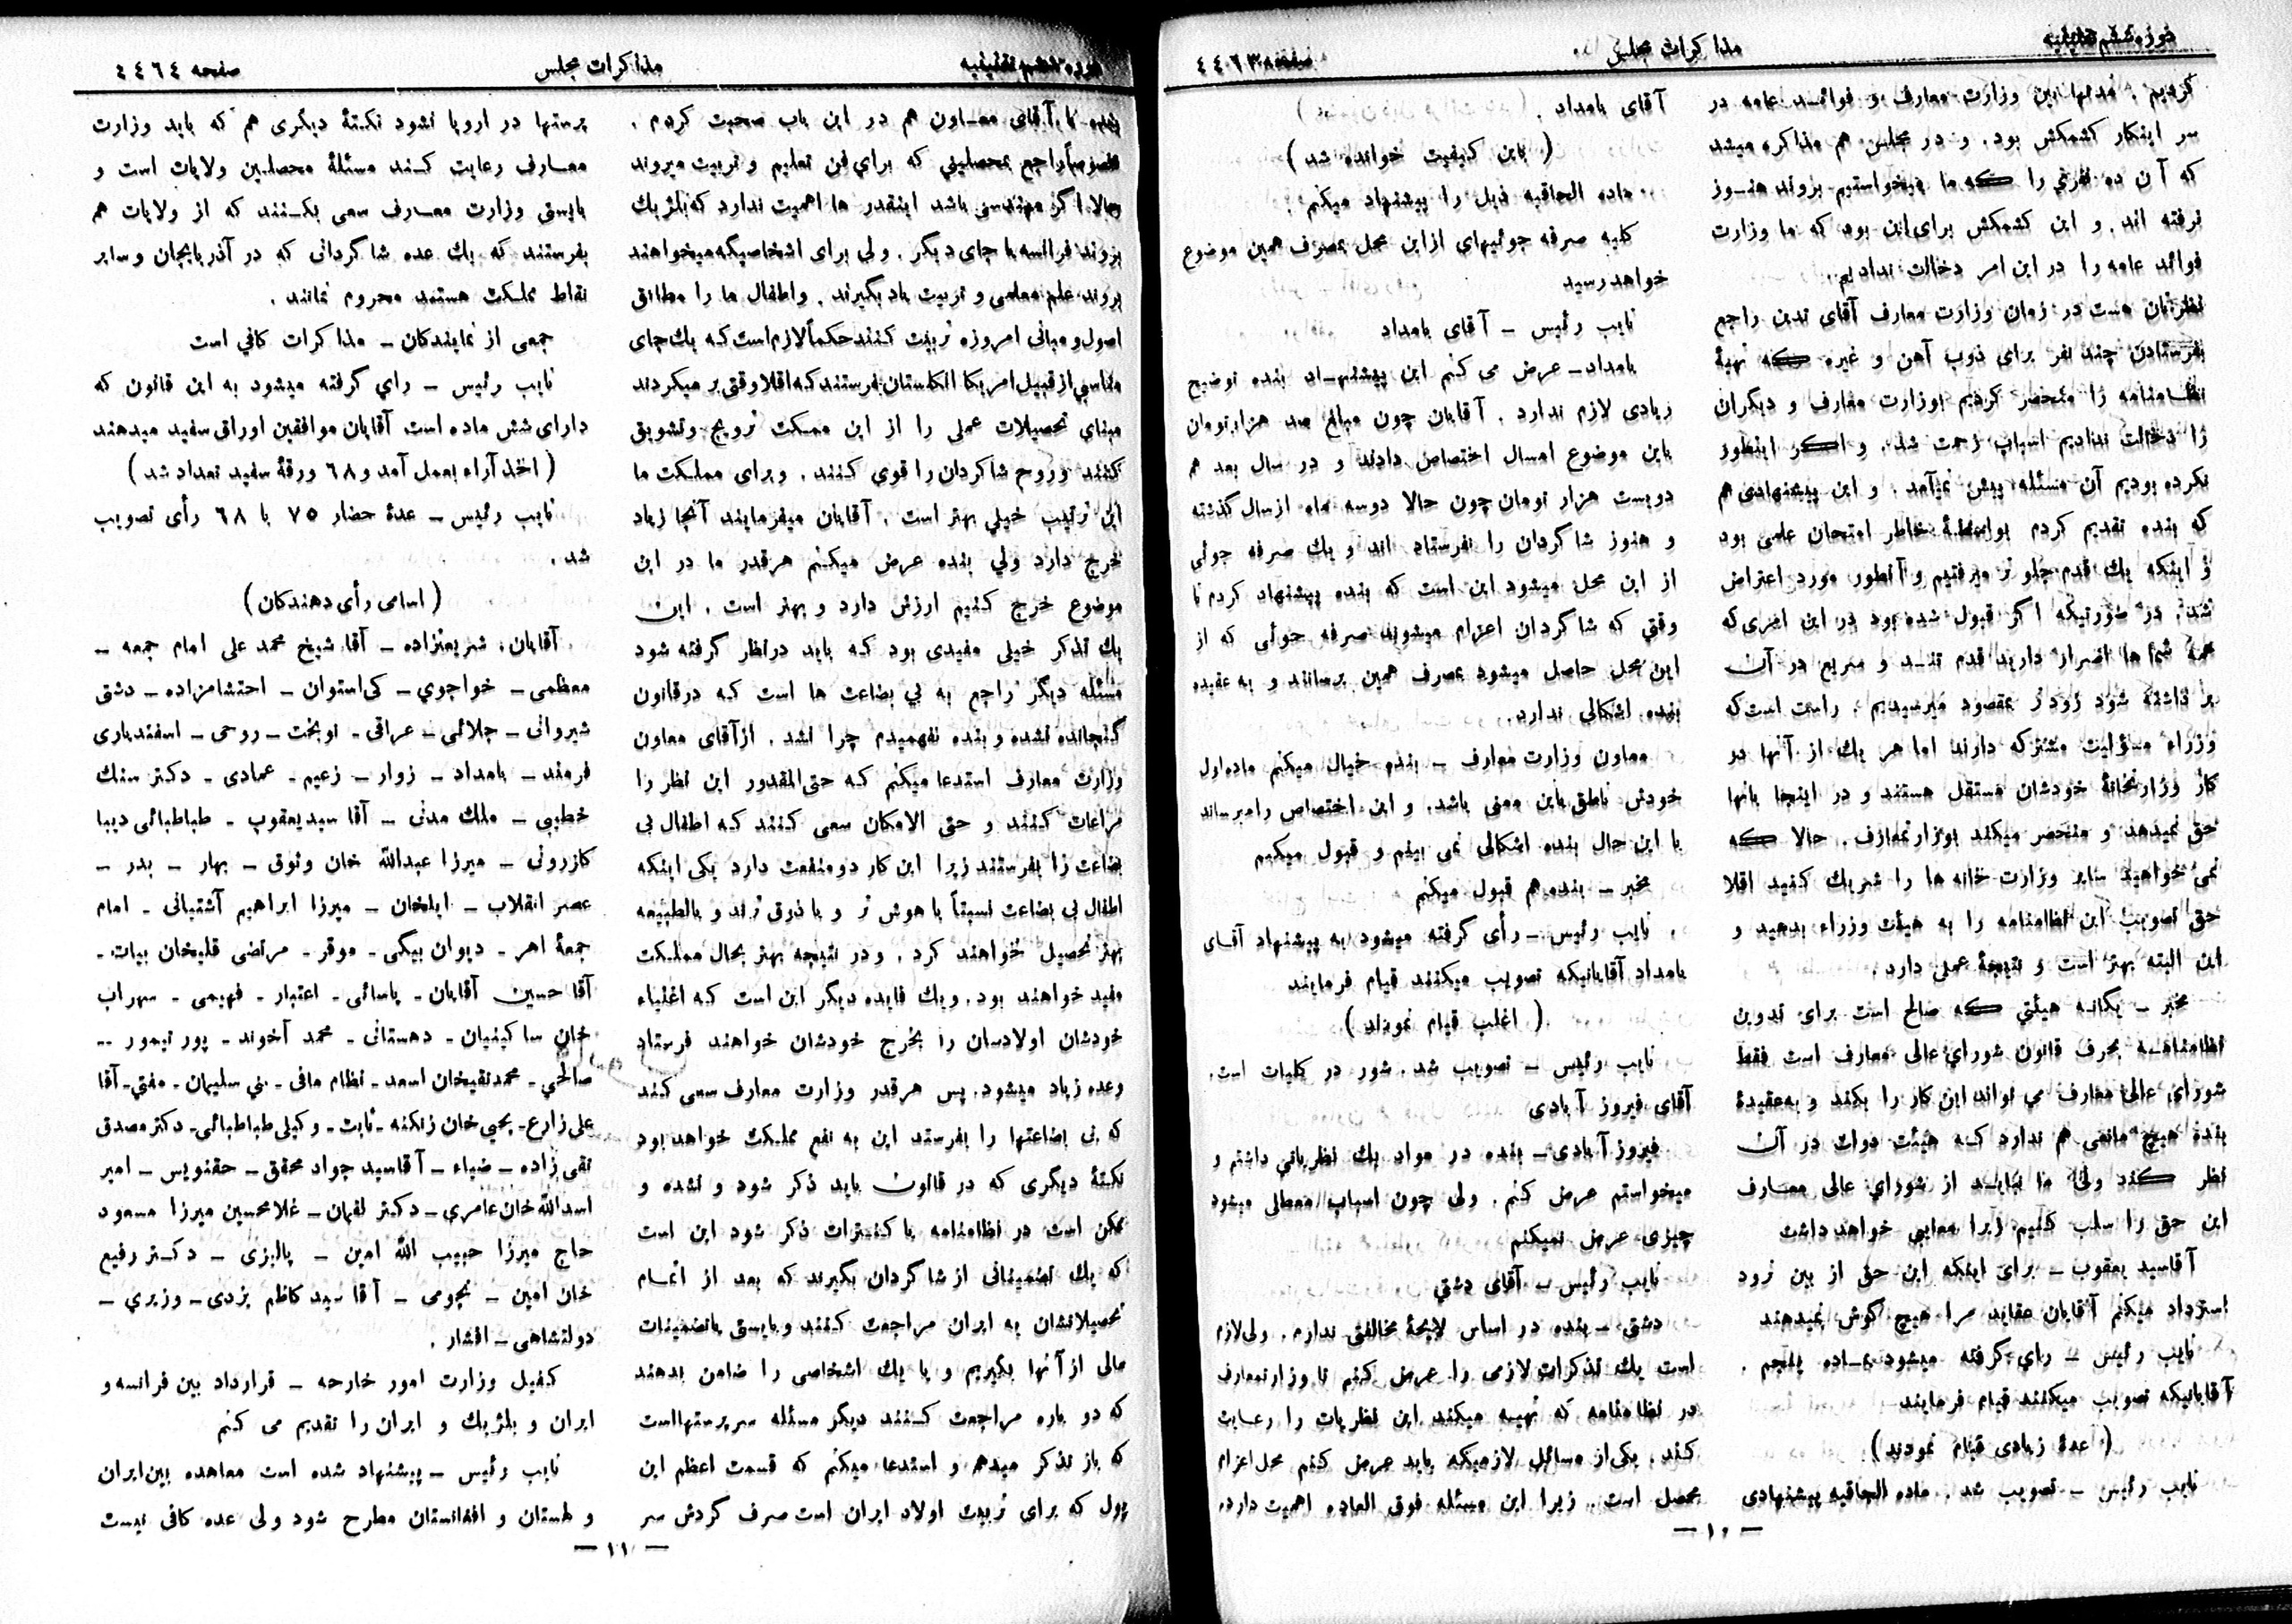 دوره ششم تقنینیه
مذاکرات مجلس
صفحه ٤٤٦٣
کردیم. مدتها بین وزارت معارف و فوائد عامه در
سر اینکار کشمکش بود. و در مجلس هم مذاکره میشد
که آن ده نفری را که ما میخواستیم بروند هنوز
نرفته اند. و این کشمکش برای این بود که ما وزارت
فوائد عامه را در این امر دخالت ندادیم.
نظرتان هست در زمان وزارت معارف آقای تدین راجع
بفرستادن چند نفر برای ذوب آهن و غیره که تهیهٔ
نظامنامه را منحصر کردیم بوزارت معارف و دیگران
را دخالت ندادیم اسباب زحمت شد. و اگر اینطور
نکرده بودیم آن مسئله پیش نمیآمد. و این پیشنهادی هم
که بنده تقدیم کردم بواسطهٔ خاطر امتحان علمی بود
و اینکه یك قدم جلو تر میرفتیم و آنطور مورد اعتراض
شد. در صورتیکه اگر قبول شده بود در این امری که
همهٔ شما ها اصرار دارید قدم تند و سریع در آن
بر داشته شود زود تر بمقصود میرسیدیم. راست است که
وزراء مسؤلیت مشترکه دارند اما هر یك از آنها در
کار وزارتخانهٔ خودشان مستقل هستند و در اینجا بانها
حق نمیدهد و منحصر میکند بوزارتمعارف. حالا که
نمی خواهید سایر وزارت خانه ها را شریك کنید اقلا
حق تصویب این نظامنامه را به هیئت وزراء بدهید و
این البته بهتر است و نتیجهٔ عملی دارد.
مخبر ـ یگانه هیئتی که صالح است برای تدوین
نظامنامه بحرف قانون شورای عالی معارف است فقط
شورای عالی معارف می تواند این کار را بکند و به عقیدهٔ
بنده هیچ مانعی هم ندارد که هیئت دولت در آن
نظر کند ولی ما نباید از شورای عالی معارف
این حق را سلب کنیم زیرا معایبی خواهد داشت
آقاسید یعقوب ـ برای اینکه این حق از بین نرود
استرداد میکنم آقایان عقاید مرا هیچ گوش نمیدهند
نایب رئیس ـ رای گرفته میشود بماده پنجم.
آقایانیکه تصویب میکنند قیام فرمایند
( عدهٔ زیادی قیام نمودند)
نایب رئیس ـ تصویب شد. ماده الحاقیه پیشنهادی
آقای بامداد.
( باین کیفیت خوانده شد)
ماده الحاقیه ذیل را پیشنهاد میکنم:
کلیه صرفه جوئیهای از این محل بمصرف همین موضوع
خواهد رسید
نایب رئیس ـ آقای بامداد
بامداد ـ عرض می کنم این پیشنهاد بنده توضیح
زیادی لازم ندارد. آقایان چون مبلغ صد هزار تومان
باین موضوع امسال اختصاص دادند و در سال بعد هم
دویست هزار تومان چون حالا دوسه ماه از سال گذشته
و هنوز شاگردان را نفرستاده اند و یك صرفه جوئی
از این محل میشود این است که بنده پیشنهاد کردم تا
وقتی که شاگردان اعزام میشوند صرفه جوئی که از
این محل حاصل میشود بمصرف همین برسانند و به عقیده
بنده اشکالی ندارد.
معاون وزارت معارف ـ بنده خیال میکنم ماده اول
خودش ناطق باین معنی باشد. و این اختصاص را میرساند
با این حال بنده اشکالی نمی بینم و قبول میکنم
مخبر ـ بنده هم قبول میکنم
نایب رئیس ـ رأی گرفته میشود به پیشنهاد آقای
بامداد آقایانیکه تصویب میکنند قیام فرمایند
( اغلب قیام نمودند)
نایب رئیس ـ تصویب شد. شور در کلیات است.
آقای فیروز آبادی
فیروز آبادی ـ بنده در مواد یك نظریاتی داشتم و
میخواستم عرض کنم. ولی چون اسباب معطلی میشود
چیزی عرض نمیکنم
نایب رئیس ـ آقای دشتی
دشتی ـ بنده در اساس لایحهٔ مخالفتی ندارم. ولی لازم
است یك تذکرات لازمی را عرض کنم تا وزارتمعارف
در نظامنامه که تهیه میکند این نظریات را رعایت
کند. یکی از مسائل لازمیکه باید عرض کنم محل اعزام
محصل است. زیرا این مسئله فوق العاده اهمیت دارد.
ـ ١٠ ـ
دوره ششم تقنینیه
مذاکرات مجلس
صفحه ٤٤٦٤
بنده با آقای معاون هم در این باب صحبت کردم.
خصوصاً راجع بمحصلینی که برای فن تعلیم و تربیت میروند
حالا اگر مهندسی باشد اینقدر ها اهمیت ندارد که بلژیك
بروند فرانسه یا جای دیگر. ولی برای اشخاصیکه میخواهند
بروند علم معلمی و تربیت یاد بگیرند. و اطفال ما را مطابق
اصول و مبانی امروزه تربیت کنند حکماً لازم است که یك جای
مناسبی از قبیل امریکا انگلستان بفرستند که اقلا وقتی بر میگردند
مبنای تحصیلات عملی را از این مملکت ترویج و تشویق
کنند و روح شاگردان را قوی کنند. و برای مملکت ما
این ترتیب خیلی بهتر است. آقایان میفرمایند آنجا زیاد
خرج دارد ولی بنده عرض میکنم هرقدر ما در این
موضوع خرج کنیم ارزش دارد و بهتر است. این
یك تذکر خیلی مفیدی بود که باید در نظر گرفته شود
مسئله دیگر راجع به بی بضاعت ها است که در قانون
گنجانده نشده و بنده نفهمیدم چرا نشد. از آقای معاون
وزارت معارف استدعا میکنم که حتی المقدور این نظر را
مراعات کنند و حتی الامکان سعی کنند که اطفال بی
بضاعت را بفرستند زیرا این کار دو منفعت دارد یکی اینکه
اطفال بی بضاعت نسبتاً با هوش تر و با ذوق ترند و بالطبیعه
بهتر تحصیل خواهند کرد. و در نتیجه بهتر بحال مملکت
مفید خواهند بود. و یك فایده دیگر این است که اغنیاء
خودشان اولادسان را بخرج خودشان خواهند فرستاد
وعده زیاد میشود. پس هرقدر وزارت معارف سعی کند
که بی بضاعتها را بفرستد این به نفع مملکت خواهد بود
نکتهٔ دیگری که در قانون باید ذکر شود و نشده و
ممکن است در نظامنامه یا کنترات ذکر شود این است
که یك تضمیناتی از شاگردان بگیرند که بعد از اتمام
تحصیلاتشان به ایران مراجعت کنند و بایستی یا تضمینات
مالی از آنها بگیریم و یا یك اشخاصی را ضامن بدهند
که دو باره مراجعت کنند دیگر مسئله سرپرستها است
که باز تذکر میدهم و استدعا میکنم که قسمت اعظم این
پول که برای تربیت اولاد ایران است صرف گردش سر
پرستها در اروپا نشود نکتهٔ دیگری هم که باید وزارت
معارف رعایت کند مسئلهٔ محصلین ولایات است و
بایستی وزارت معارف سعی بکنند که از ولایات هم
بفرستند که یك عده شاگردانی که در آذربایجان و سایر
نقاط مملکت هستند محروم نمانند.
جمعی از نمایندگان ـ مذاکرات کافی است
نایب رئیس ـ رای گرفته میشود به این قانون که
دارای شش ماده است آقایان موافقین اوراق سفید میدهند
( اخذ آراء بعمل آمد و ٦٨ ورقهٔ سفید تعداد شد)
نایب رئیس ـ عدهٔ حضار ٧٥ با ٦٨ رأی تصویب
شد.
( اسامی رأی دهندگان)
آقایان: شریعتزاده ـ آقا شیخ محمد علی امام جمعه ـ
معظمی ـ خواجوی ـ کی استوان ـ احتشامزاده ـ دشتی
شیروانی ـ جلائی ـ عراقی ـ نوبخت ـ روحی ـ اسفندیاری
فرمند ـ بامداد ـ زوار ـ زعیم ـ عمادی ـ دکتر سنك
خطیبی ـ ملك مدنی ـ آقا سید یعقوب ـ طباطبائی دیبا
کازرونی ـ میرزا عبدالله خان وثوق ـ بهار ـ بدر ـ
عصر انقلاب ـ ایلخان ـ میرزا ابراهیم آشتیانی ـ امام
جمعهٔ اهر ـ دیوان بیگی ـ موقر ـ مرتضی قلیخان بیات ـ
آقا حسین آقایان ـ یاسائی ـ اعتبار ـ فهیمی ـ سهراب
خان ساکینیان ـ دهستانی ـ محمد آخوند ـ پور تیمور ـ
صالحی ـ محمدتقیخان اسعد ـ نظام مافی ـ بنی سلیمان ـ مفتی ـ آقا
علی زارع ـ یحیی خان زنگنه ـ ثابت ـ وکیلی طباطبائی ـ دکتر مصدق
تقی زاده ـ ضیاء ـ آقاسید جواد محقق ـ حقنویس ـ امیر
اسدالله خان عامری ـ دکتر لقمان ـ غلامحسین میرزا مسعود
حاج میرزا حبیب الله امین ـ پالیزی ـ دکتر رفیع
خان امین ـ نجومی ـ آقا سید کاظم یزدی ـ وزیری ـ
دولتشاهی ـ افشار.
کفیل وزارت امور خارجه ـ قرارداد بین فرانسه و
ایران و بلژیك و ایران را تقدیم می کنم
نایب رئیس ـ پیشنهاد شده است معاهده بین ایران
و لهستان و افغانستان مطرح شود ولی عده کافی نیست
ـ ١١ ـ